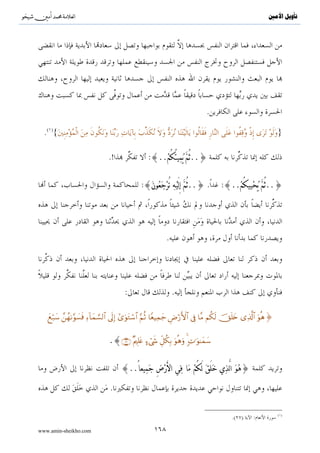 تأويل الأمين
العلّامة محمد أمين شيخو
من السعداء، فما اقتران النفس بجسدها إلاَّ لتقوم بواجبها وتصل إلى سعادتها الأبدية فإذا ما انقضى
الأجل فستنفصل الروح وتخرج النفس من الجسد وسينقطع عملها وترقد رقدة طويلة الأمد تنتهي
بها يوم البعث والنشور يوم يقرن الله هذه النفس إلى جسدها ثانية ويعيد إليها الروح، وهنالك
تقف بين يدي ربِّها لتؤدي حساباً دقيقاً عمَّا قدَّمت من أعمال وتوفَّى كل نفس بما كسبت وهناك
الحسرة والسوء على الكافرين.
{وَلَوْ تَرَى إِذْ وُقِفُوا عَلَى النَّارِ فَقَالُوا يَا لَيْتَنَا نُرَدُّ وَلَا نُكَذِّبَ بِآيَاتِ رَبِّنَا وَنَكُونَ مِنَ الْمُؤْمِنِينَ}(١).
ذلك كله إنَّما تذكِّرنا به كلمة ﴿..ثُمَّ يُمِيتُكُمْ..﴾: ألا تفكر بهذا!.
﴿..ثُمَّ يُحْيِيكُمْ..﴾: غداً. ﴿..ثُمَّ إِلَيْهِ تُرْجَعُونَ﴾: للمحاكمة والسؤال والحساب، كما أنها
تذكِّرنا أيضاً بأن الذي أوجدنا ولم نك شيئاً مذكوراً، ثم أحيانا من بعد موتنا وأخرجنا إلى هذه
الدنيا، وأن الذي أمدَّنا بالحياة ومَن افتقارنا دوماً إليه هو الذي يمدُّنا وهو القادر على أن يحيينا
ويصدرنا كما بدأنا أول مرة، وهو أهون عليه.
وبعد أن ذكر لنا تعالى فضله علينا في إيجادنا وإخراجنا إلى هذه الحياة الدنيا، وبعد أن ذكرنا
بالموت وبمرجعنا إليه أراد تعالى أن يبيِّن لنا طرفاً من فضله علينا وعنايته بنا لعلَّنا نفكّر ولو قليلاً
فنأوي إلى كنف هذا الرب المنعم ونلجأ إليه. ولذلك قال تعالى:
﴿هُوَ الَّذِي خَلَقَ لَكُم مَّا فِي الْأَرْضِ جَمِيعًا ثُمَّ اسْتَوَىٰ إِلَى السَّمَاءِ فَسَوَّاهُنَّ سَبْعَ
سَمَاوَاتٍ وَهُوَ بِكُلِّ شَيْءٍ عَلِيمٌ (٢٩)﴾.
وتريد كلمة ﴿هُوَ الَّذِي خَلَقَ لَكُم مَّا فِي الْأَرْضِ جَمِيعًا..﴾ أن تلفت نظرنا إلى الأرض وما
عليها، وهي إنَّما تتناول نواحي عديدة جديرة بإعمال نظرنا وتفكيرنا. مَن الذي خَلَقَ لك كل هذه
(١) سورة الأنعام: الآية (٢٧).
١٦٨
www.amin-sheikho.com